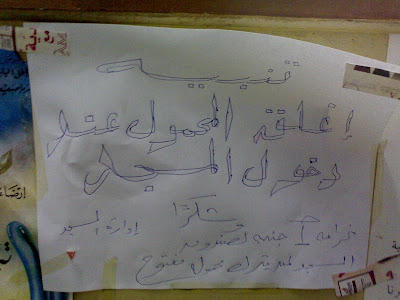 AM
تنبيه
إغلقة المحمول عند
دخول المسجد
شكرًا
إدارة المسجد
غرامه 1 جنيه لصندوق
المسجد لمن يترك محمول مفتوح